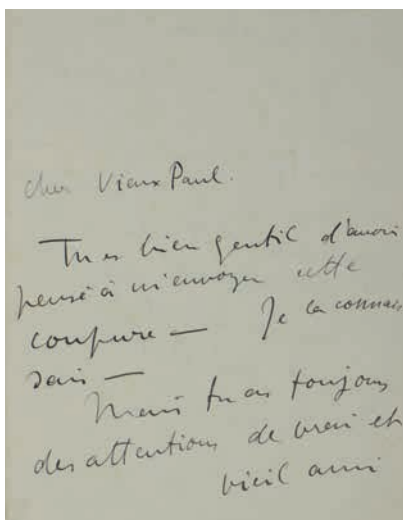 cher Vieux Paul.
Tu es bien gentil d'avoir
pensé à m'envoyer cette
coupure — Je la connais
sais —
Mais tu as toujours
des attentions de vrai et
vieil ami